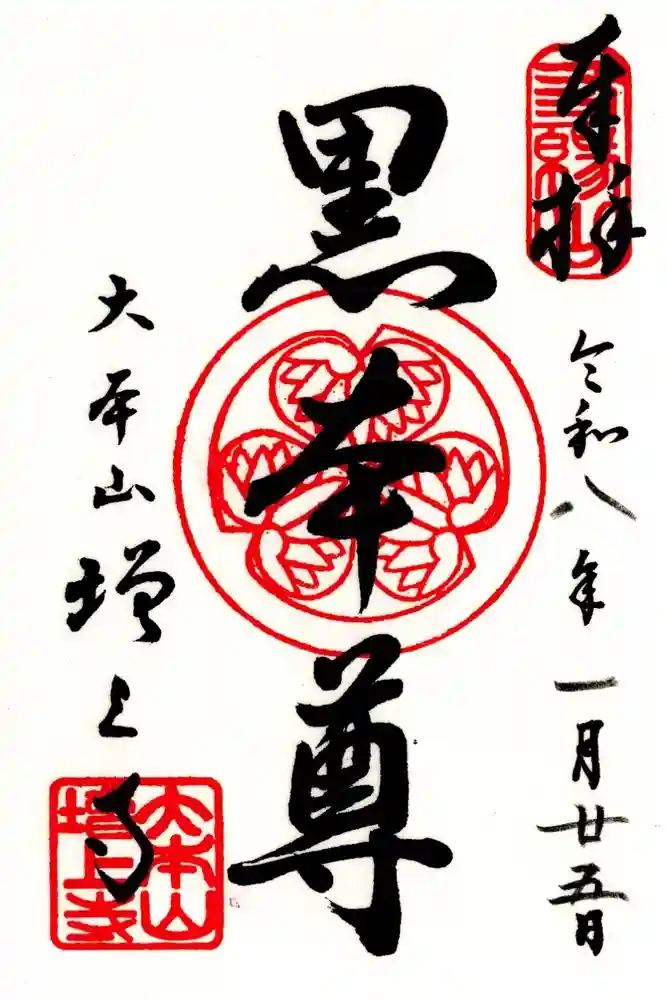 奉拝
令和八年一月廿五日
黒本尊
大本山増上寺
大本山
増上寺